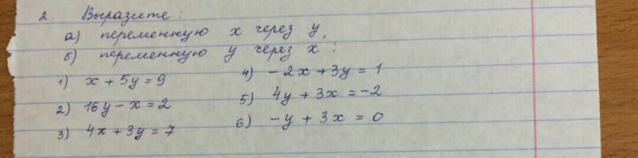 2. Выразите:
а) переменную x через y,
б) переменную y через x:
1) x + 5y = 9
2) 16y - x = 2
3) 4x + 3y = 7
4) -2x + 3y = 1
5) 4y + 3x = -2
6) -y + 3x = 0